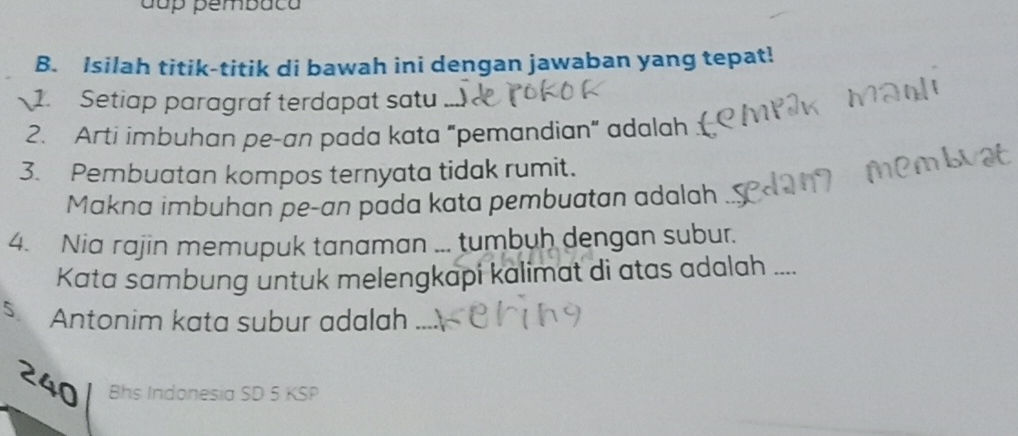 dap pembaca
B. Isilah titik-titik di bawah ini dengan jawaban yang tepat!
1. Setiap paragraf terdapat satu ... ide pokok
2. Arti imbuhan pe-an pada kata "pemandian" adalah tempan mandi
3. Pembuatan kompos ternyata tidak rumit.
Makna imbuhan pe-an pada kata pembuatan adalah ... sedang membuat
4. Nia rajin memupuk tanaman ... tumbuh dengan subur.
sehingga
Kata sambung untuk melengkapi kalimat di atas adalah ....
5. Antonim kata subur adalah .... kering
240 Bhs Indonesia SD 5 KSP